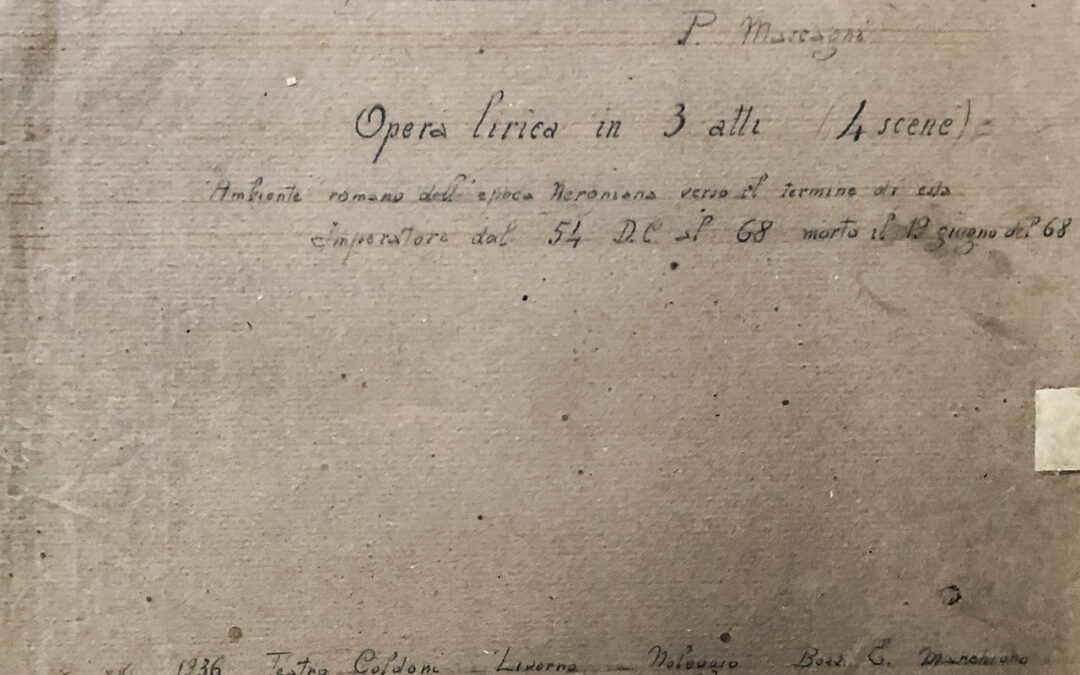 P. Mascagni
Opera lirica in 3 atti (4 scene) =
Ambiente romano dell'epoca Neroniana verso il termine di essa
Imperatore dal 54 D.C al 68 morto il 19 giugno del 68
1936 Teatro Goldoni - Livorno - Noleggio Bozz. E. Marchioro